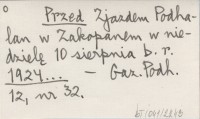 Przed Zjazdem Podha-
lan w Zakopanem w nie-
dzielę 10 sierpnia b. r.
1924... — Gaz. Podh.
12, nr 32.